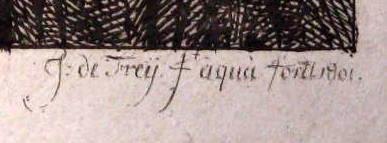 J: de Freÿ f aquà forti 1801.